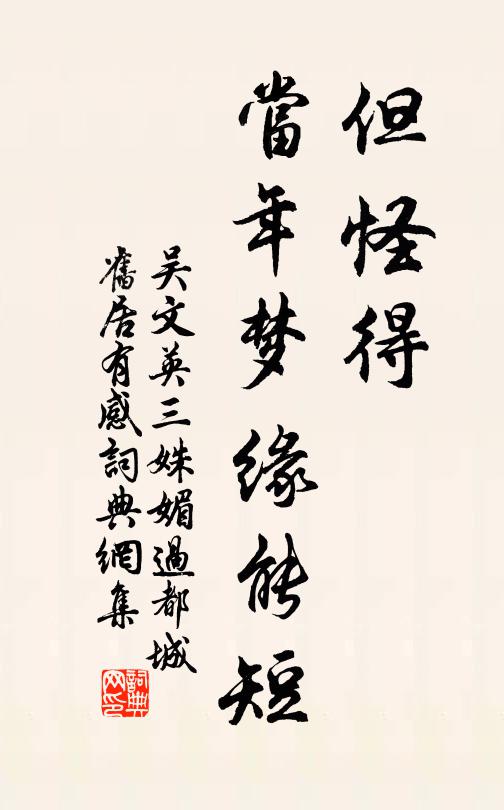 但怪得
當年梦缘能短
吴文英三姝媚過都城
舊居有感詞典網集
詞典
网印